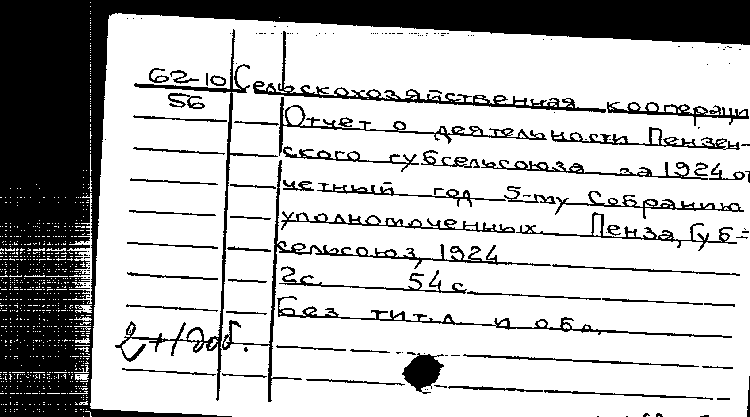 62-10 Сельскохозяйственная коопераци
56
Отчет о деятельности Пензен-
ского губсельсоюза за 1924 от
четный год 5-му Собранию
уполномоченных. Пенза, Губ-
сельсоюз, 1924
2с. 54 с.
Без тит. л и обл.